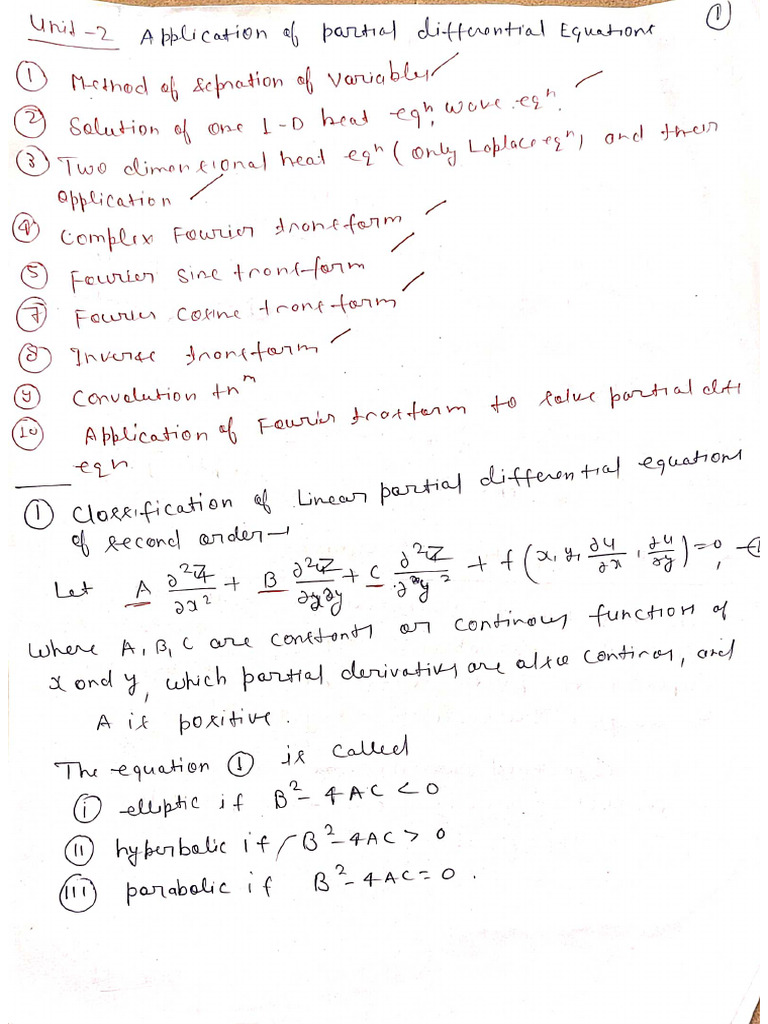 Unit-2 Application of partial differential Equations ①
① Method of Sepration of variables ✓
② Solution of one 1-D heat eqⁿ, wave eqⁿ.
③ Two dimensional heat eqⁿ (only Laplace eqⁿ), and their
application
④ Complex Fourier transform
⑤ Fourier Sine transform
⑦ Fourier Cosine transform
⑧ Inverse transform
⑨ Convolution tnᵐ
⑩ Application of Fourier trasform to solve partial diff
eqn
① Classification of Linear partial differential equations
of second order→
Let A ∂²Z/∂x² + B ∂²Z/∂x∂y + C ∂²Z/∂y² + f(x, y, ∂u/∂x, ∂u/∂y) = 0, —①
where A, B, C are constants or continous functions of
x and y, which partial derivatives are also continos, and
A is positive.
The equation ① is called
(i) elliptic if B² - 4AC < 0
(ii) hyberbolic if B² - 4AC > 0
(iii) parabolic if B² - 4AC = 0.